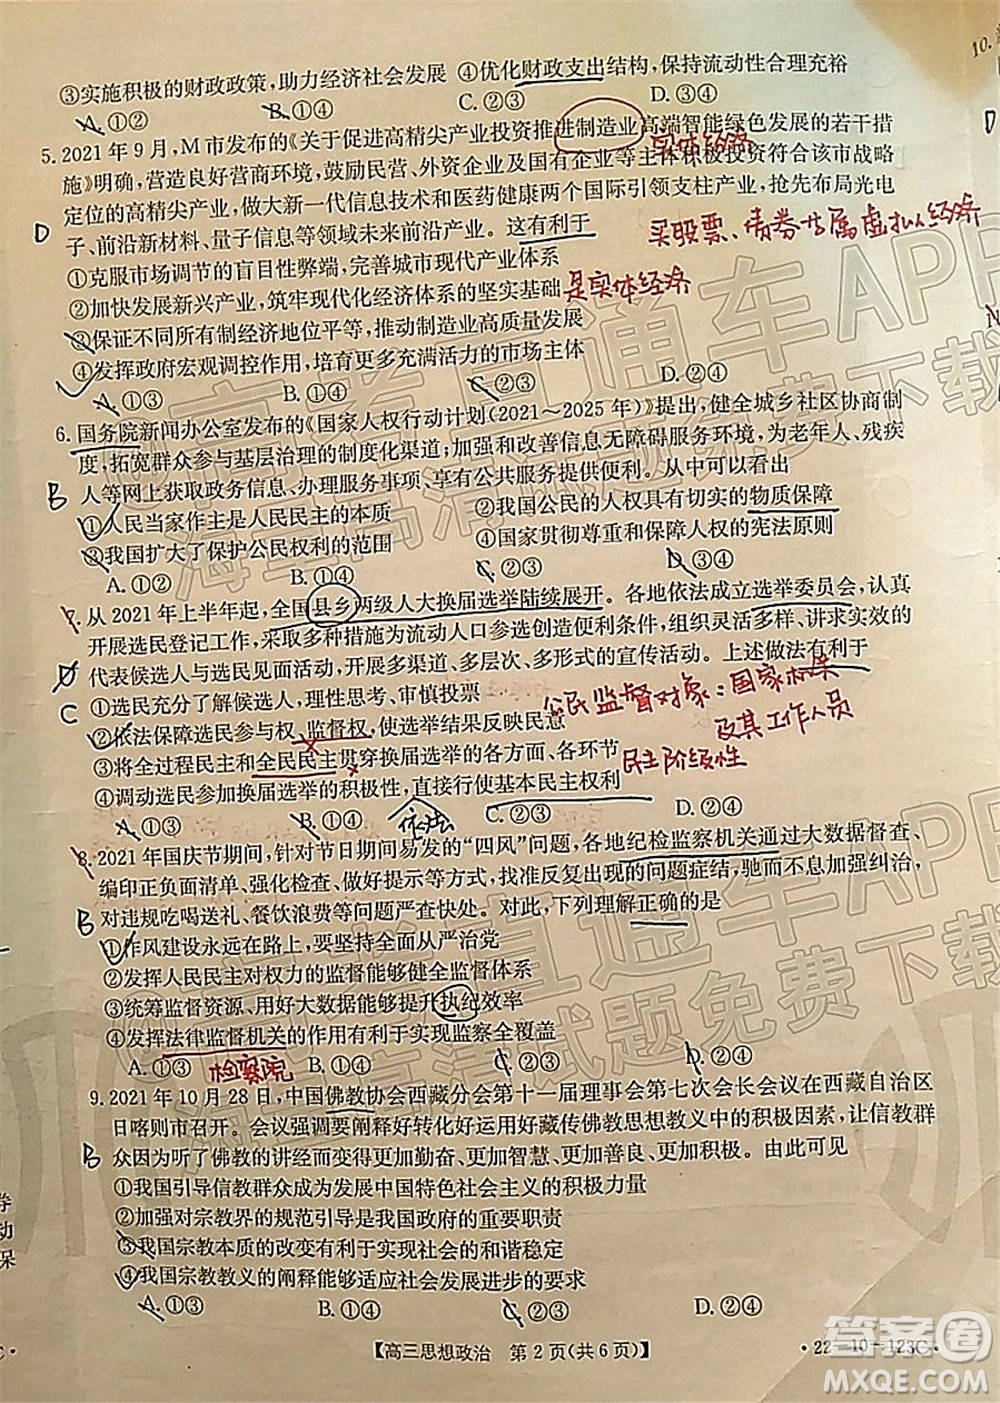 ③实施积极的财政政策，助力经济社会发展 ④优化财政支出结构，保持流动性合理充裕
A.①② B.①④ C.②③ D.③④
5.2021年9月，M市发布的《关于促进高精尖产业投资推进制造业高端智能绿色发展的若干措
实体经济
施》明确，营造良好营商环境，鼓励民营、外资企业及国有企业等主体积极投资符合该市战略
定位的高精尖产业，做大新一代信息技术和医药健康两个国际引领支柱产业，抢先布局光电
D 子、前沿新材料、量子信息等领域未来前沿产业。这有利于
买股票、债券 属虚拟经济
①克服市场调节的盲目性弊端，完善城市现代产业体系
②加快发展新兴产业，筑牢现代化经济体系的坚实基础 是实体经济
③保证不同所有制经济地位平等，推动制造业高质量发展
④发挥政府宏观调控作用，培育更多充满活力的市场主体
A.①③ B.①④ C.②③ D.②④
6.国务院新闻办公室发布的《国家人权行动计划（2021～2025年）》提出，健全城乡社区协商制
度，拓宽群众参与基层治理的制度化渠道；加强和改善信息无障碍服务环境，为老年人、残疾
B 人等网上获取政务信息、办理服务事项、享有公共服务提供便利。从中可以看出
①人民当家作主是人民民主的本质 ②我国公民的人权具有切实的物质保障
③我国扩大了保护公民权利的范围 ④国家贯彻尊重和保障人权的宪法原则
A.①② B.①④ C.②③ D.③④
7.从2021年上半年起，全国县乡两级人大换届选举陆续展开。各地依法成立选举委员会，
开展选民登记工作，采取多种措施为流动人口参选创造便利条件，组织灵活多样、讲求实效的
D 代表候选人与选民见面活动，开展多渠道、多层次、多形式的宣传活动。上述做法有利于
C ①选民充分了解候选人，理性思考、审慎投票
公民监督对象：国家机关
及其工作人员
②依法保障选民参与权、监督权，使选举结果反映民意
③将全过程民主和全民民主贯穿换届选举的各方面、各环节 民主阶级性
④调动选民参加换届选举的积极性，直接行使基本民主权利
A.①③ B.①④ C.②③ D.②④
依法
8.2021年国庆节期间，针对节日期间易发的“四风”问题，各地纪检监察机关通过大数据督查、
编印正负面清单、强化检查、做好提示等方式，找准反复出现的问题症结，驰而不息纠治，
B 对违规吃喝送礼、餐饮浪费等问题严查快处。对此，下列理解正确的是
①作风建设永远在路上，要坚持全面从严治党
②发挥人民民主对权力的制约作用能够健全监督体系
③统筹监督资源、用好大数据能够提升执纪效率
④发挥法律监督机关的作用有利于实现监察全覆盖
A.①③ B.①④ C.②③ D.②④
检察院
9.2021年10月28日，中国佛教协会西藏分会第十一届理事会第七次会长会议在西藏自治区
日喀则市召开。会议强调要阐释好转化好运用好藏传佛教思想教义中的积极因素，让信教群
B 众因为听了佛教的讲经而变得更加勤奋、更加智慧、更加善良、更加积极。由此可见
①我国引导信教群众成为发展中国特色社会主义的积极力量
②加强对宗教界的规范引导是我国政府的重要职责
③我国宗教本质的改变有利于实现社会的和谐稳定
④我国宗教教义的阐释能够适应社会发展进步的要求
A.①③ B.①④ C.②③ D.②④
【高三思想政治 第2页(共6页)】 ·22-10-123C·
答案圈
MXQE.COM